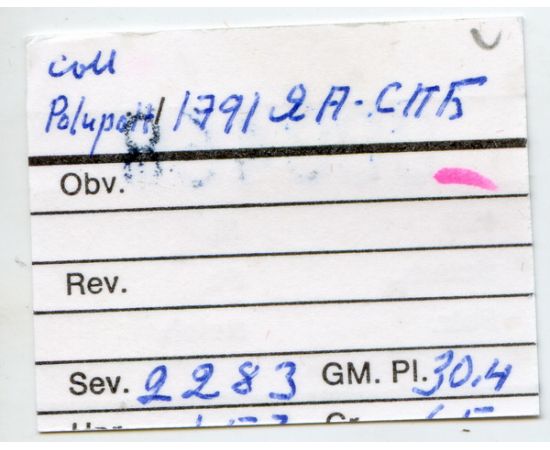 coll
Polupolt/1791 ЯА-СПБ
Obv.
Rev.
Sev. 2283 GM. Pl. 30.4